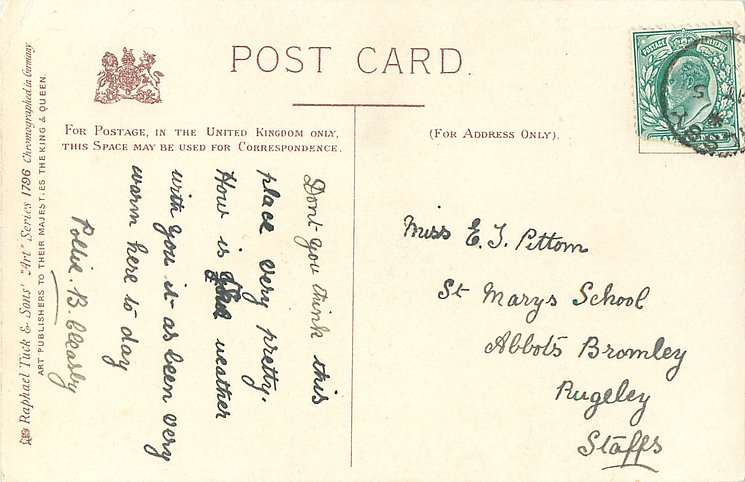 POST CARD.
FOR POSTAGE, IN THE UNITED KINGDOM ONLY,
THIS SPACE MAY BE USED FOR CORRESPONDENCE.
(FOR ADDRESS ONLY).
Raphael Tuck & Sons' "Art" Series 1796 Chromographed in Germany
ART PUBLISHERS TO THEIR MAJESTIES THE KING & QUEEN.
Dont you think this
place very pretty.
How is weather
with you it as been very
warm here to day
Pollie. B. Cleasby
Miss E. J. Pittom
St Marys School
Abbots Bromley
Rugeley
Staffs
POSTAGE REVENUE